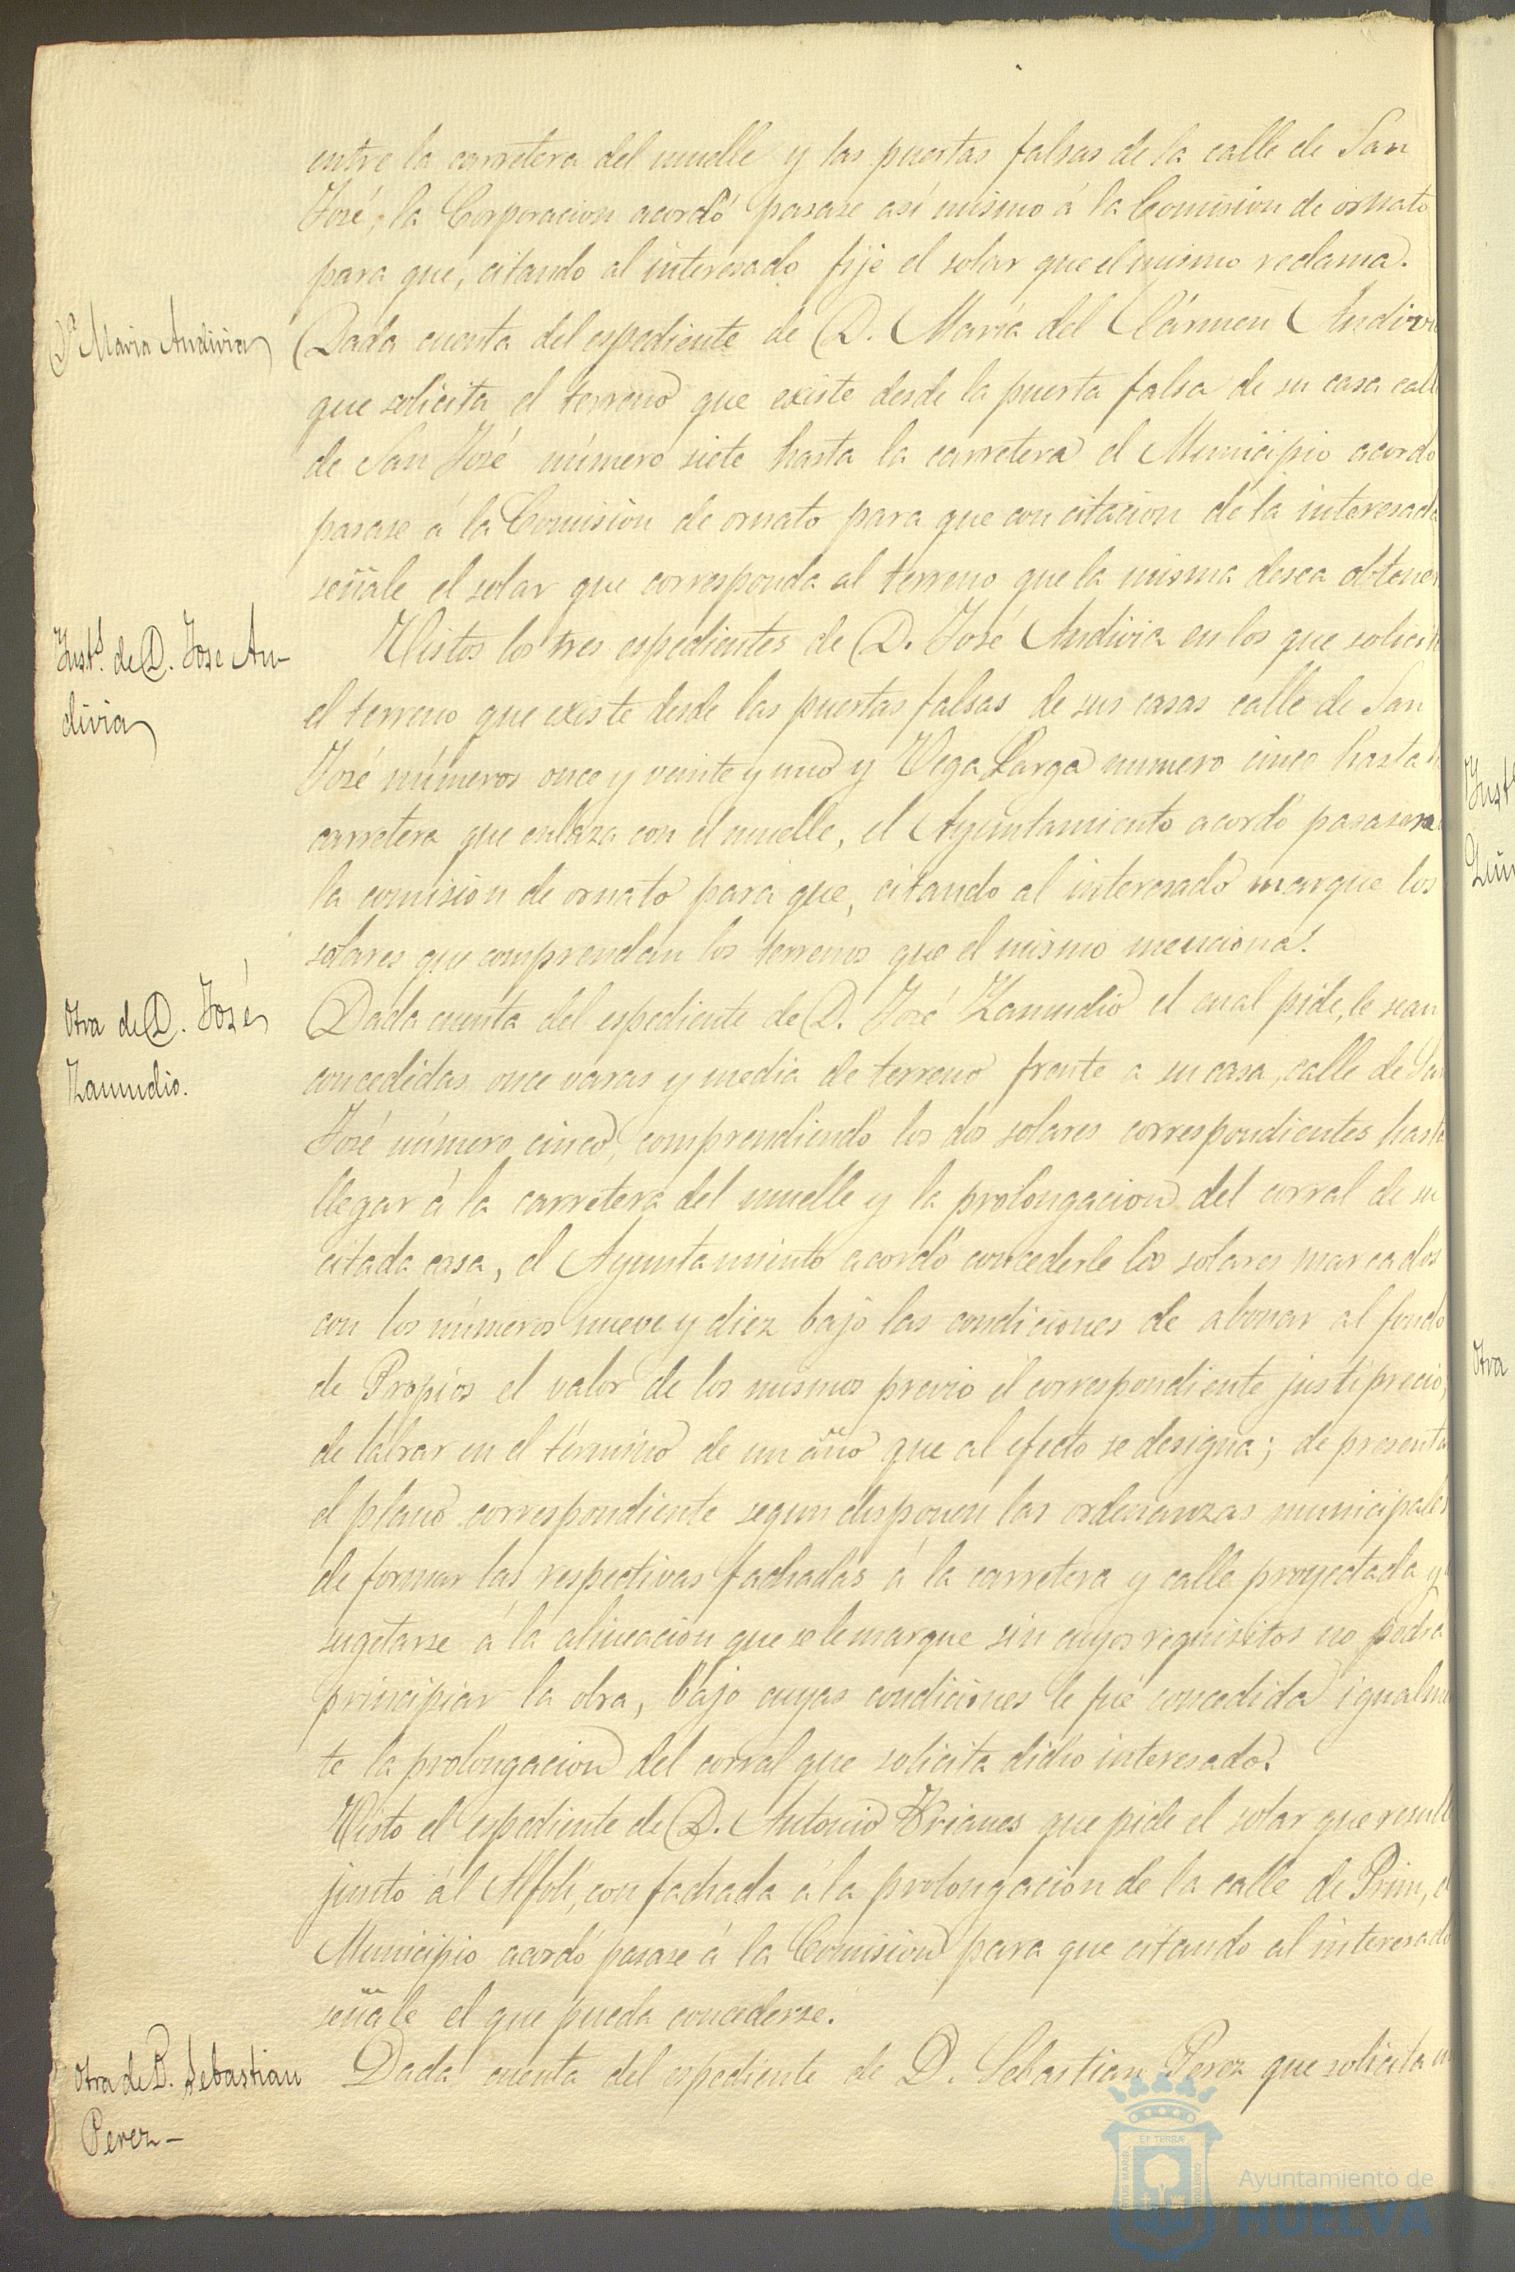 entre la carretera del muelle y las puertas falsas de la calle de San
José, la Corporacion acordó pasase así mismo á la Comision de ornato
para que, citando al interesado fije el solar que el mismo reclama.
Dª Maria Andivia
Dada cuenta del espediente de D. María del Cármen Andivia
que solicita el terreno que existe desde la puerta falsa de su casa call
de San José número siete hasta la carretera el Municipio acordó
pasase á la Comisión de ornato para que con citacion de la interesada
señale el solar que corresponda al terreno que la misma desea obtener
Instˢ de D. Jose An-
divia
Vistos los tres espedientes de D. José Andivia en los que solicita
el terreno que existe desde las puertas falsas de sus casas calle de San
José números once y veinte y uno y Vega Larga numero cinco hasta
carretera que enlaza con el muelle, el Ayuntamiento acordó pasasen
la comisión de ornato para que, citando al interesado marque los
solares que comprendan los terrenos que el mismo menciona.
Otra de D. José
Zamudio.
Dada cuenta del espediente de D. José Zamudio el cual pide, le sean
concedidas once varas y media de terreno frente a su casa, calle de San
José número cinco, comprendiendo los dos solares correspondientes hasta
llegar á la carretera del muelle y la prolongacion del corral de su
citada casa, el Ayuntamiento acordó concederle los solares marcados
con los números nueve y diez bajo las condiciones de abonar al fondo
de Propios el valor de los mismos previo el correspondiente justiprecio,
de labrar en el término de un año que al efecto se designa; de presentar
el plano correspondiente segun disponen las ordenanzas municipales
de formar las respectivas fachadas á la carretera y calle proyectada y
sugetarse á la alineacion que se le marque sin cuyos requisitos no podrá
principiar la obra, bajo cuyas condiciones le fué concedida igualmen
te la prolongacion del corral que solicita dicho interesado.
Visto el espediente de D. Antonio Krianes que pide el solar que result
junto al Alfolí, con fachada á la prolongacion de la calle de Prim, el
Municipio acordó pasase á la Comision para que citando al interesado
señale el que pueda concederse.
Otra de D. Sebastian
Perez-
Dada cuenta del espediente de D. Sebastian Perez que solicita un
Inst
Otra
Ayuntamiento de
HUELVA